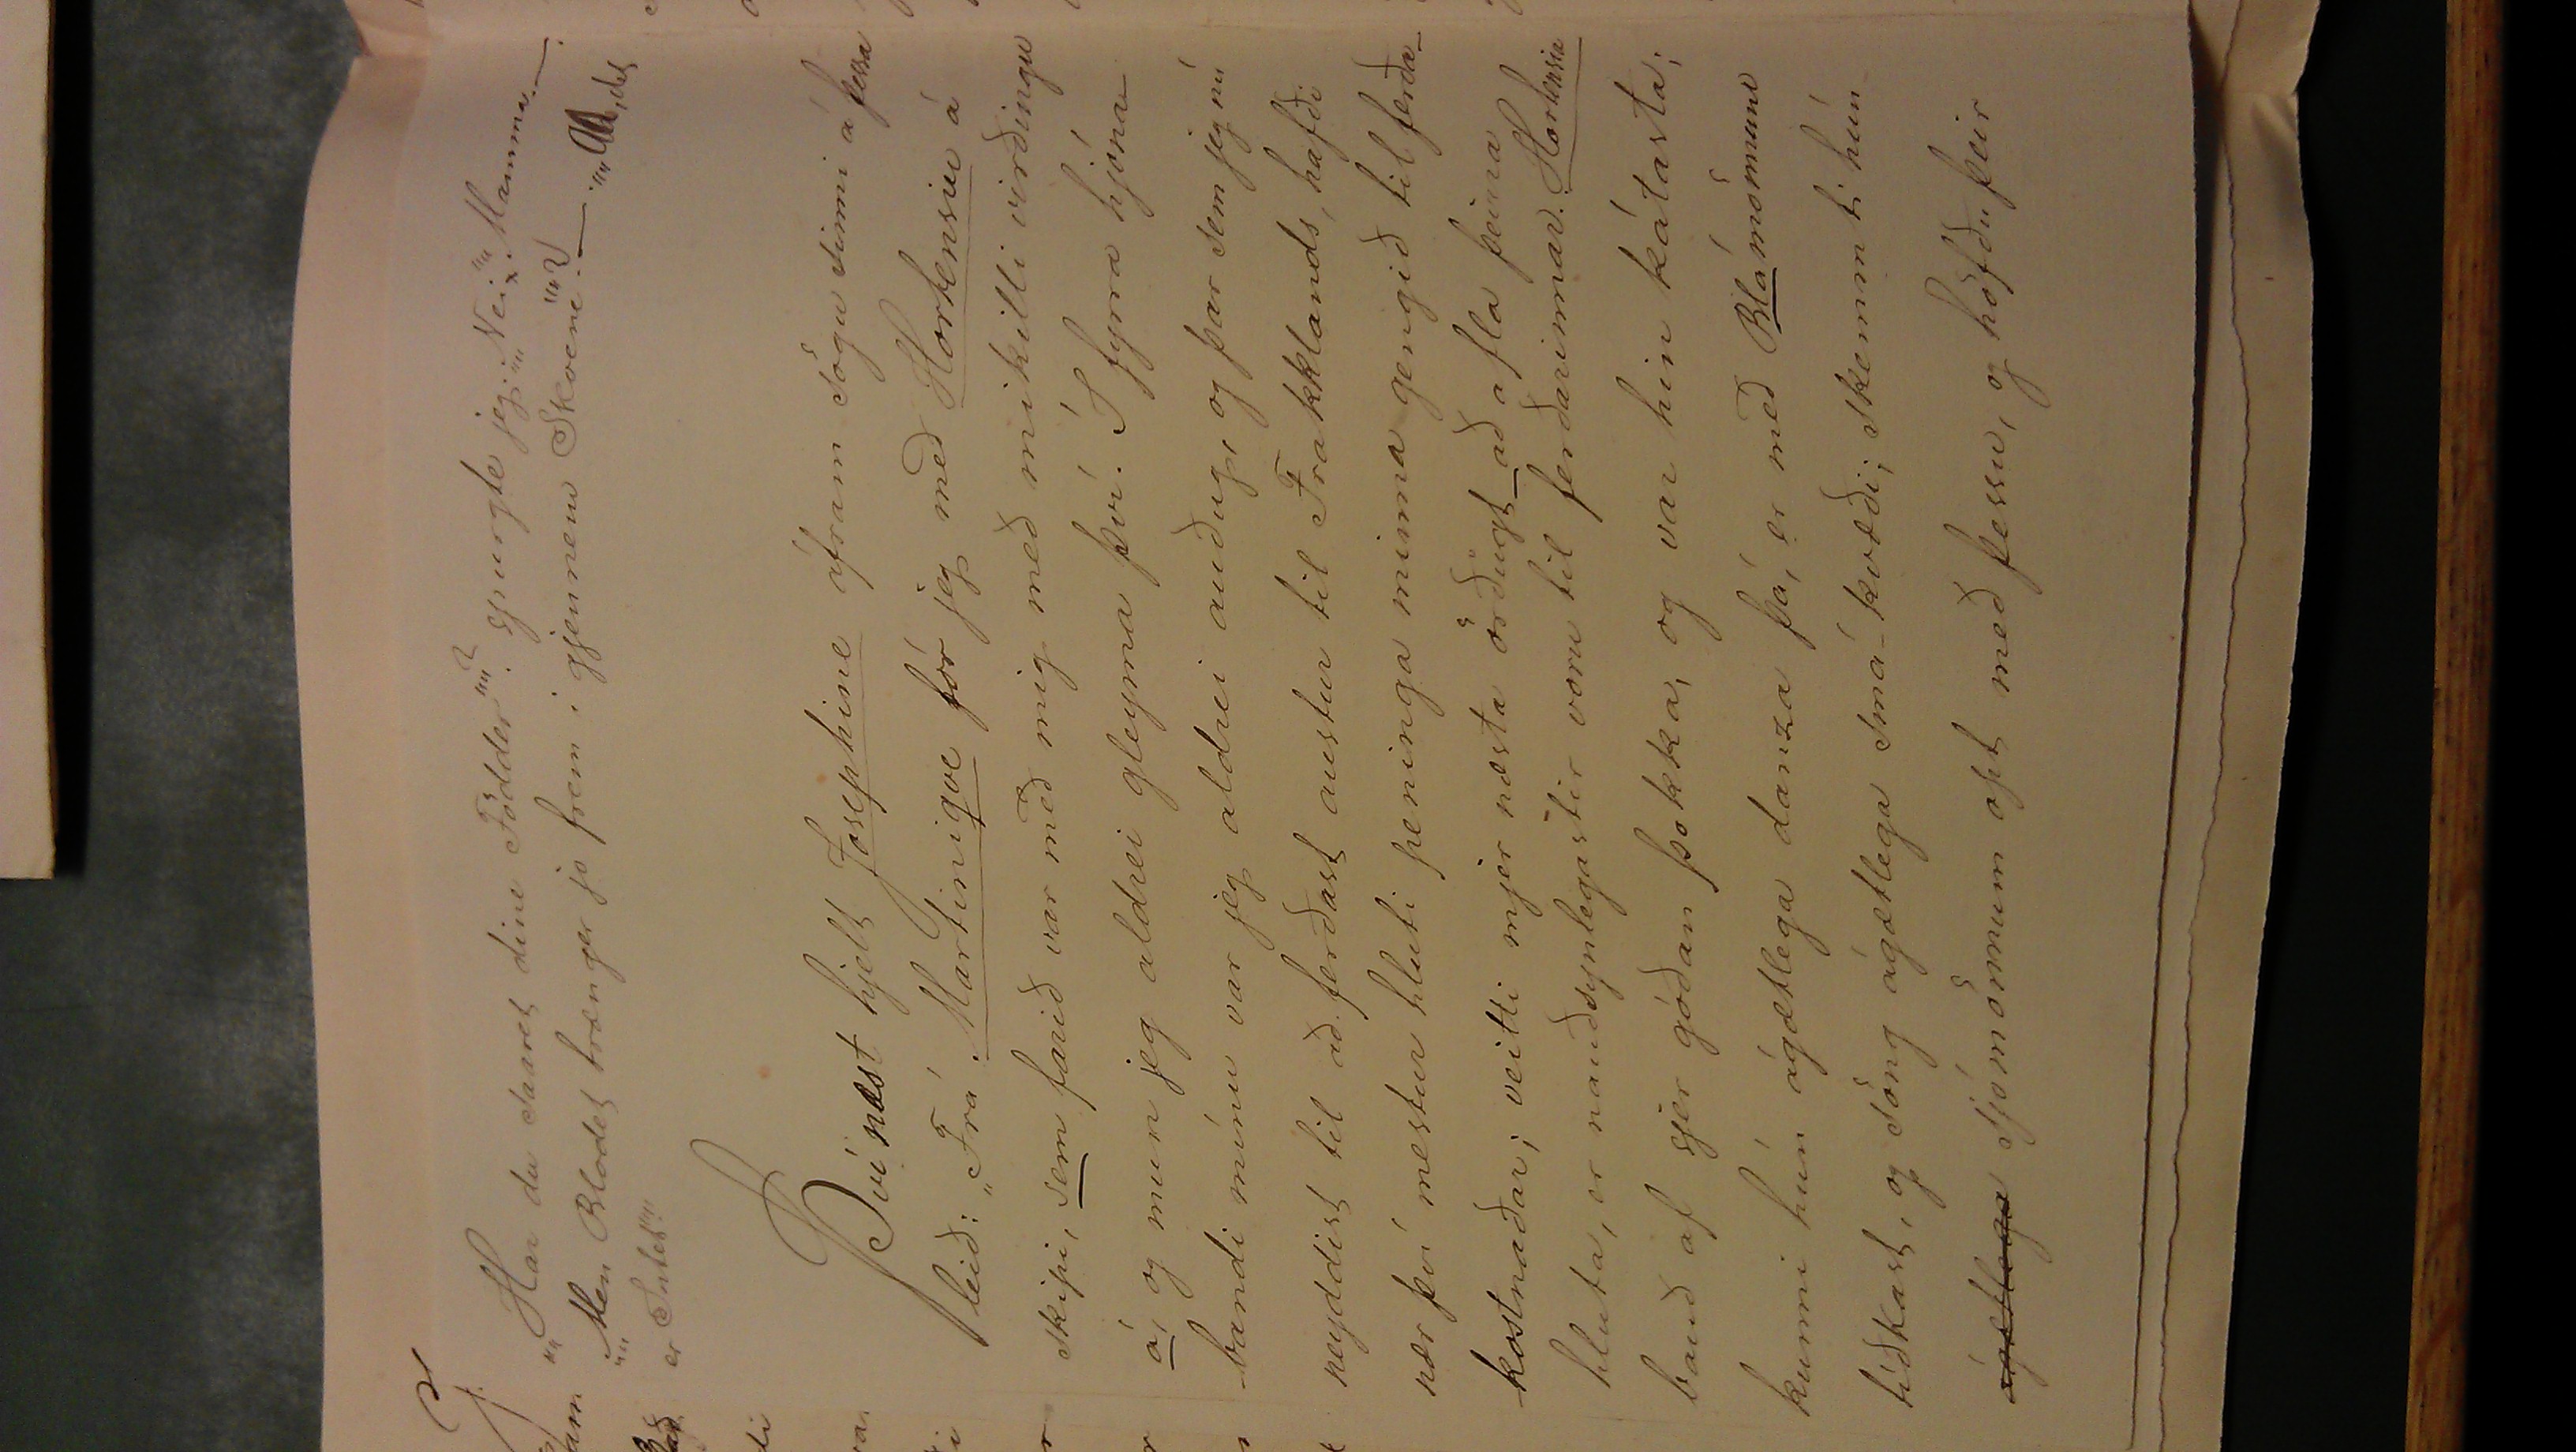 ""Har du saaret dine Födder""? spurgte jeg; ""Nei"". Mamma. —
""Men Blodet trænger jo frem i gjennem Skoene""? — ""Aa, det
er Intet"".
Því næst hjelt Josephine áfram sögu sinni á þessa
leið: „Frá Martinique fór jeg með Hortensiu á
skipi, sem farið var með mig með mikilli virðingu
á, og mun jeg aldrei gleyma því. Í fyrra hjóna-
bandi mínu var jeg aldrei auðug, og þar sem jeg nú
neyddist til að ferðast austur til Frakklands, hafði
nær því mestur hluti peninga minna gengið til ferða-
kostnaðar; veitti mjer næsta örðugt að afla þeirra
hluta, er nauðsynlegastir voru til ferðarinnar. Hortensia
bauð af sjer góðan þokka, og var hin kátasta;
kunni hún ágætlega danza þá, er með Blámönnum
tíðkast, og söng ágætlega smá-kvæði; skemmti hún
ágætlega sjómönnum opt með þessu, og höfðu þeir